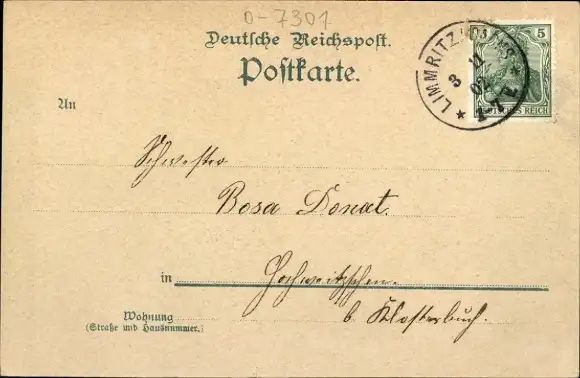 0-7301
Deutsche Reichspost.
Postkarte.
LIMMRITZ
3 11 02
5
DEUTSCHES REICH
An
Schwester
Rosa Donat.
in Hochweitzschen.
b. Klosterbuch.
Wohnung
(Straße und Hausnummer.)